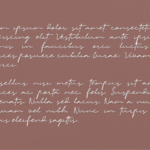 m ipsum dolor sit amet consectetu
piscing elit Vestibulum ante ipsu
is in faucibus orci luctus
ces posuere cubilia curae Vivam

sellus nisi metus tempus sit a
ces ac porta nec felis Suspendi
enatis Nulla sed lacus Nam a
quam vel nibh Nunc in turpis
us eleifend sagittis